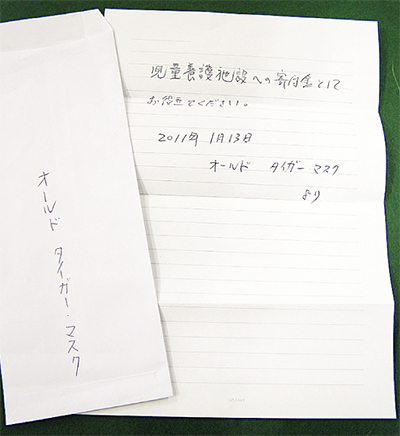 児童養護施設への寄付金として
お役立てください。
2011年 1月13日
オールド タイガー マスク
より
オールド タイガー・マスク